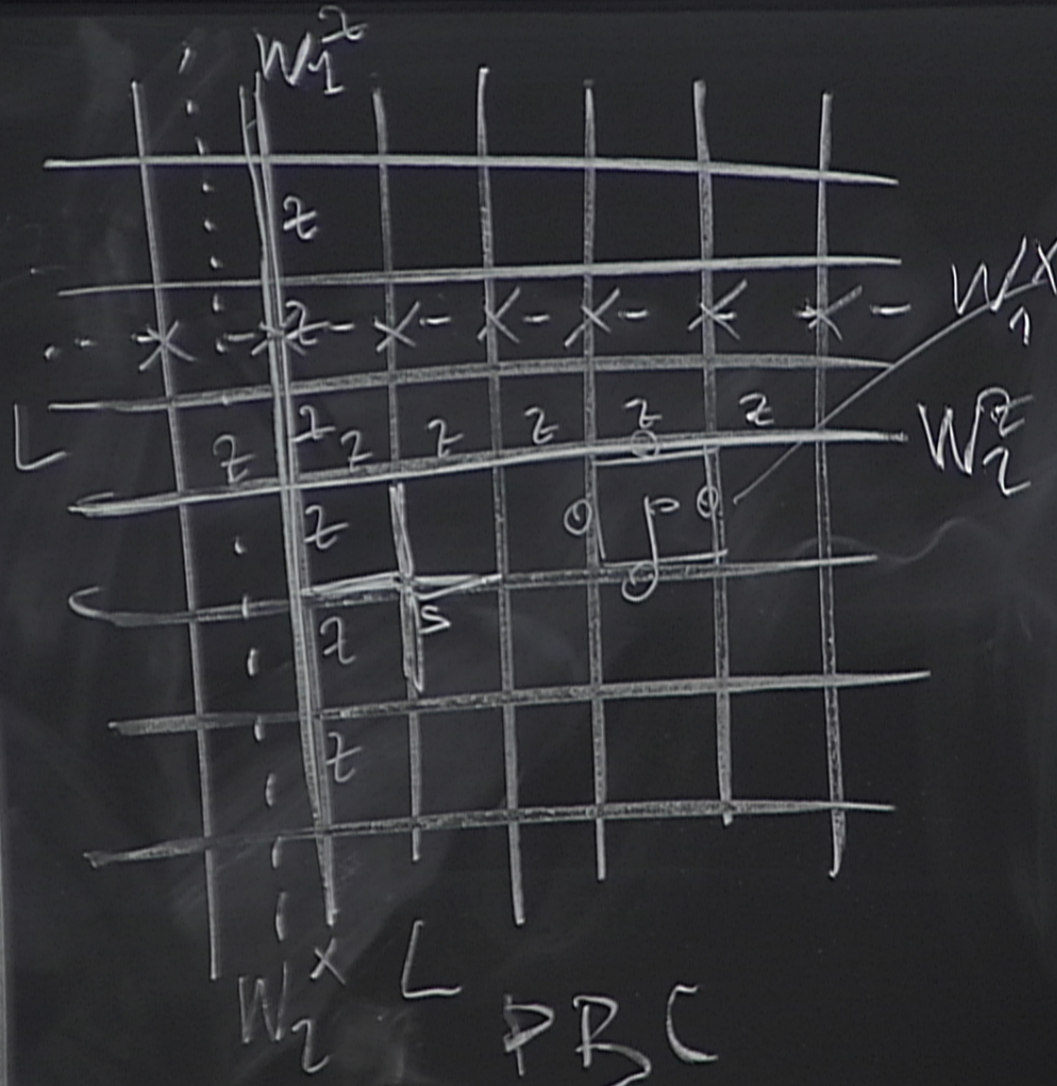 W₁ᶻ
z
X z X X X X X W₁ˣ
L z z z z z z z W₂ᶻ
z p
s
z
z
W₂ˣ L PBC